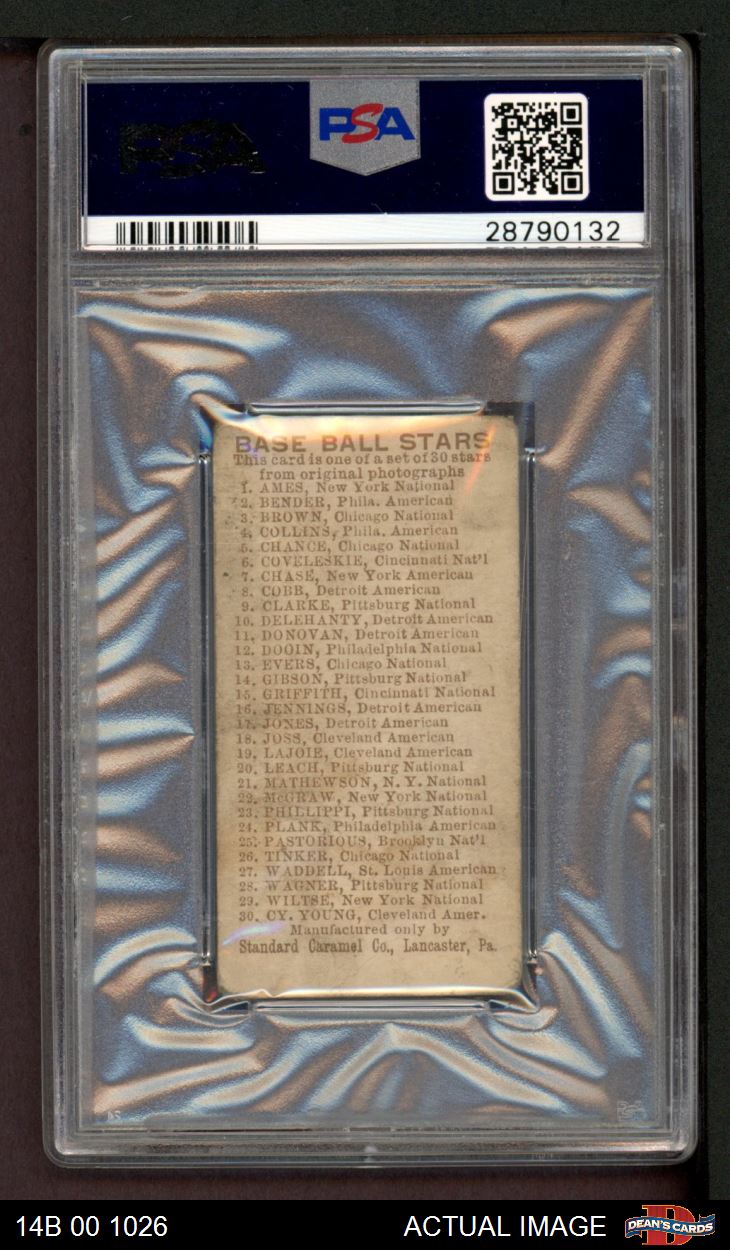 PSA
28790132
BASE BALL STARS
This card is one of a set of 30 stars
from original photographs
1. AMES, New York National
2. BENDER, Phila. American
3. BROWN, Chicago National
4. COLLINS, Phila. American
5. CHANCE, Chicago National
6. COVELESKIE, Cincinnati Nat'l
7. CHASE, New York American
8. COBB, Detroit American
9. CLARKE, Pittsburg National
10. DELEHANTY, Detroit American
11. DONOVAN, Detroit American
12. DOOIN, Philadelphia National
13. EVERS, Chicago National
14. GIBSON, Pittsburg National
15. GRIFFITH, Cincinnati National
16. JENNINGS, Detroit American
17. JONES, Detroit American
18. JOSS, Cleveland American
19. LAJOIE, Cleveland American
20. LEACH, Pittsburg National
21. MATHEWSON, N. Y. National
22. McGRAW, New York National
23. PHILLIPPI, Pittsburg National
24. PLANK, Philadelphia American
25. PASTORIOUS, Brooklyn Nat'l
26. TINKER, Chicago National
27. WADDELL, St. Louis American
28. WAGNER, Pittsburg National
29. WILTSE, New York National
30. CY. YOUNG, Cleveland Amer.
Manufactured only by
Standard Caramel Co., Lancaster, Pa.
14B 00 1026
ACTUAL IMAGE
DEAN'S CARDS